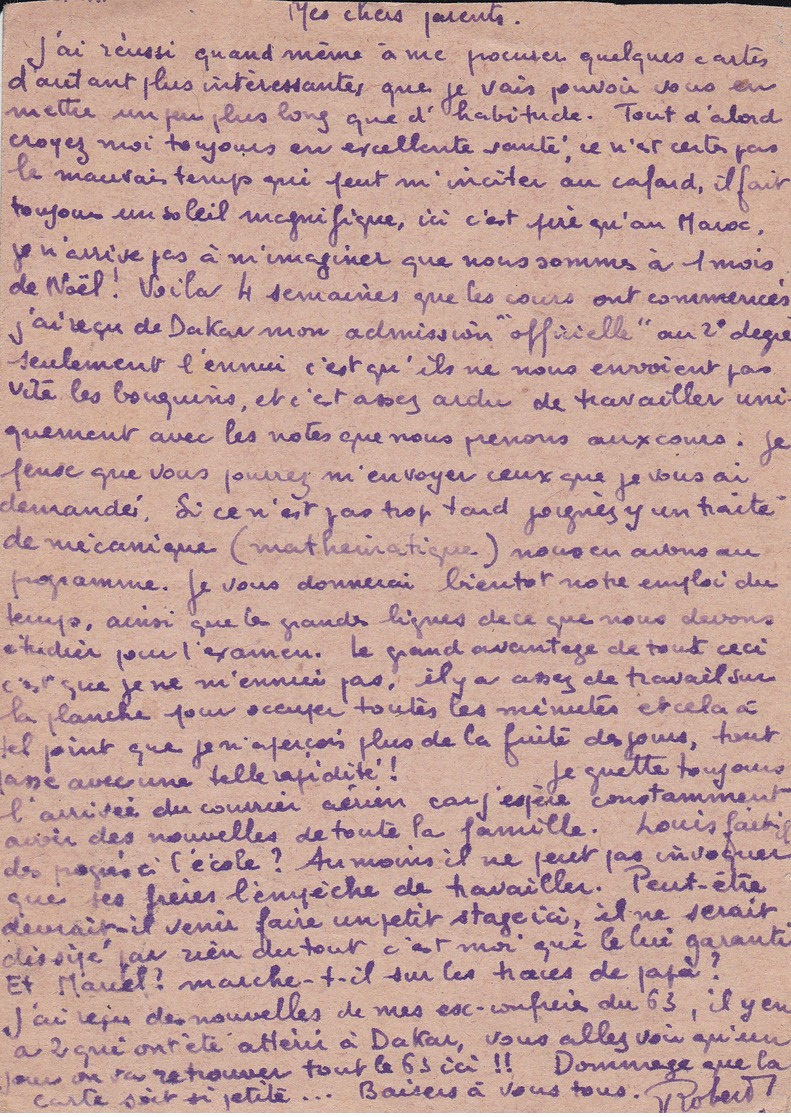 Mes chers parents.
J'ai réussi quand même à me procurer quelques cartes
d'autant plus intéressantes que je vais pouvoir vous en
mettre un peu plus long que d'habitude. Tout d'abord
croyez moi toujours en excellente santé, ce n'est certes pas
le mauvais temps qui peut m'inciter au cafard, il fait
toujours un soleil magnifique, ici c'est pire qu'au Maroc,
je n'arrive pas à m'imaginer que nous sommes à 1 mois
de Noël! Voila 4 semaines que les cours ont commencés
j'ai reçu de Dakar mon admission "officielle" au 2° degré
seulement l'ennui c'est qu'ils ne nous envoient pas
vite les bouquins, et c'est assez ardu de travailler uni-
quement avec les notes que nous prenons aux cours. Je
pense que vous pourrez m'envoyer ceux que je vous ai
demandé. Si ce n'est pas trop tard joignez y un traité
de mécanique (mathématique) nous en avons au
programme. Je vous donnerai bientot notre emploi du
temps, ainsi que les grandes lignes de ce que nous devons
étudier pour l'examen. Le grand avantage de tout ceci
c'est que je ne m'ennui pas, il y a assez de travail sur
la planche pour occuper toutes les minutes et cela à
tel point que je n'aperçois plus de la fuite des jours, tout
passe avec une telle rapidité! Je guette toujours
l'arrivée du courrier aérien car j'espère constamment
avoir des nouvelles de toute la famille. Louis fait-il
des progrès à l'école? Au moins il ne peut pas invoquer
que ses frères l'empêche de travailler. Peut-être
devrait-il venir faire un petit stage ici, il ne serait
dissipé par rien du tout c'est moi qui le lui garanti
Et Marcel? marche-t-il sur les traces de papa?
J'ai reçu des nouvelles de mes ex-confrères du 63, il y en
a 2 qui ont été atterri à Dakar, vous allez voir qu'un
jour on va retrouver tout le 63 ici!! Dommage que la
carte soit si petite... Baisers à vous tous. Robert